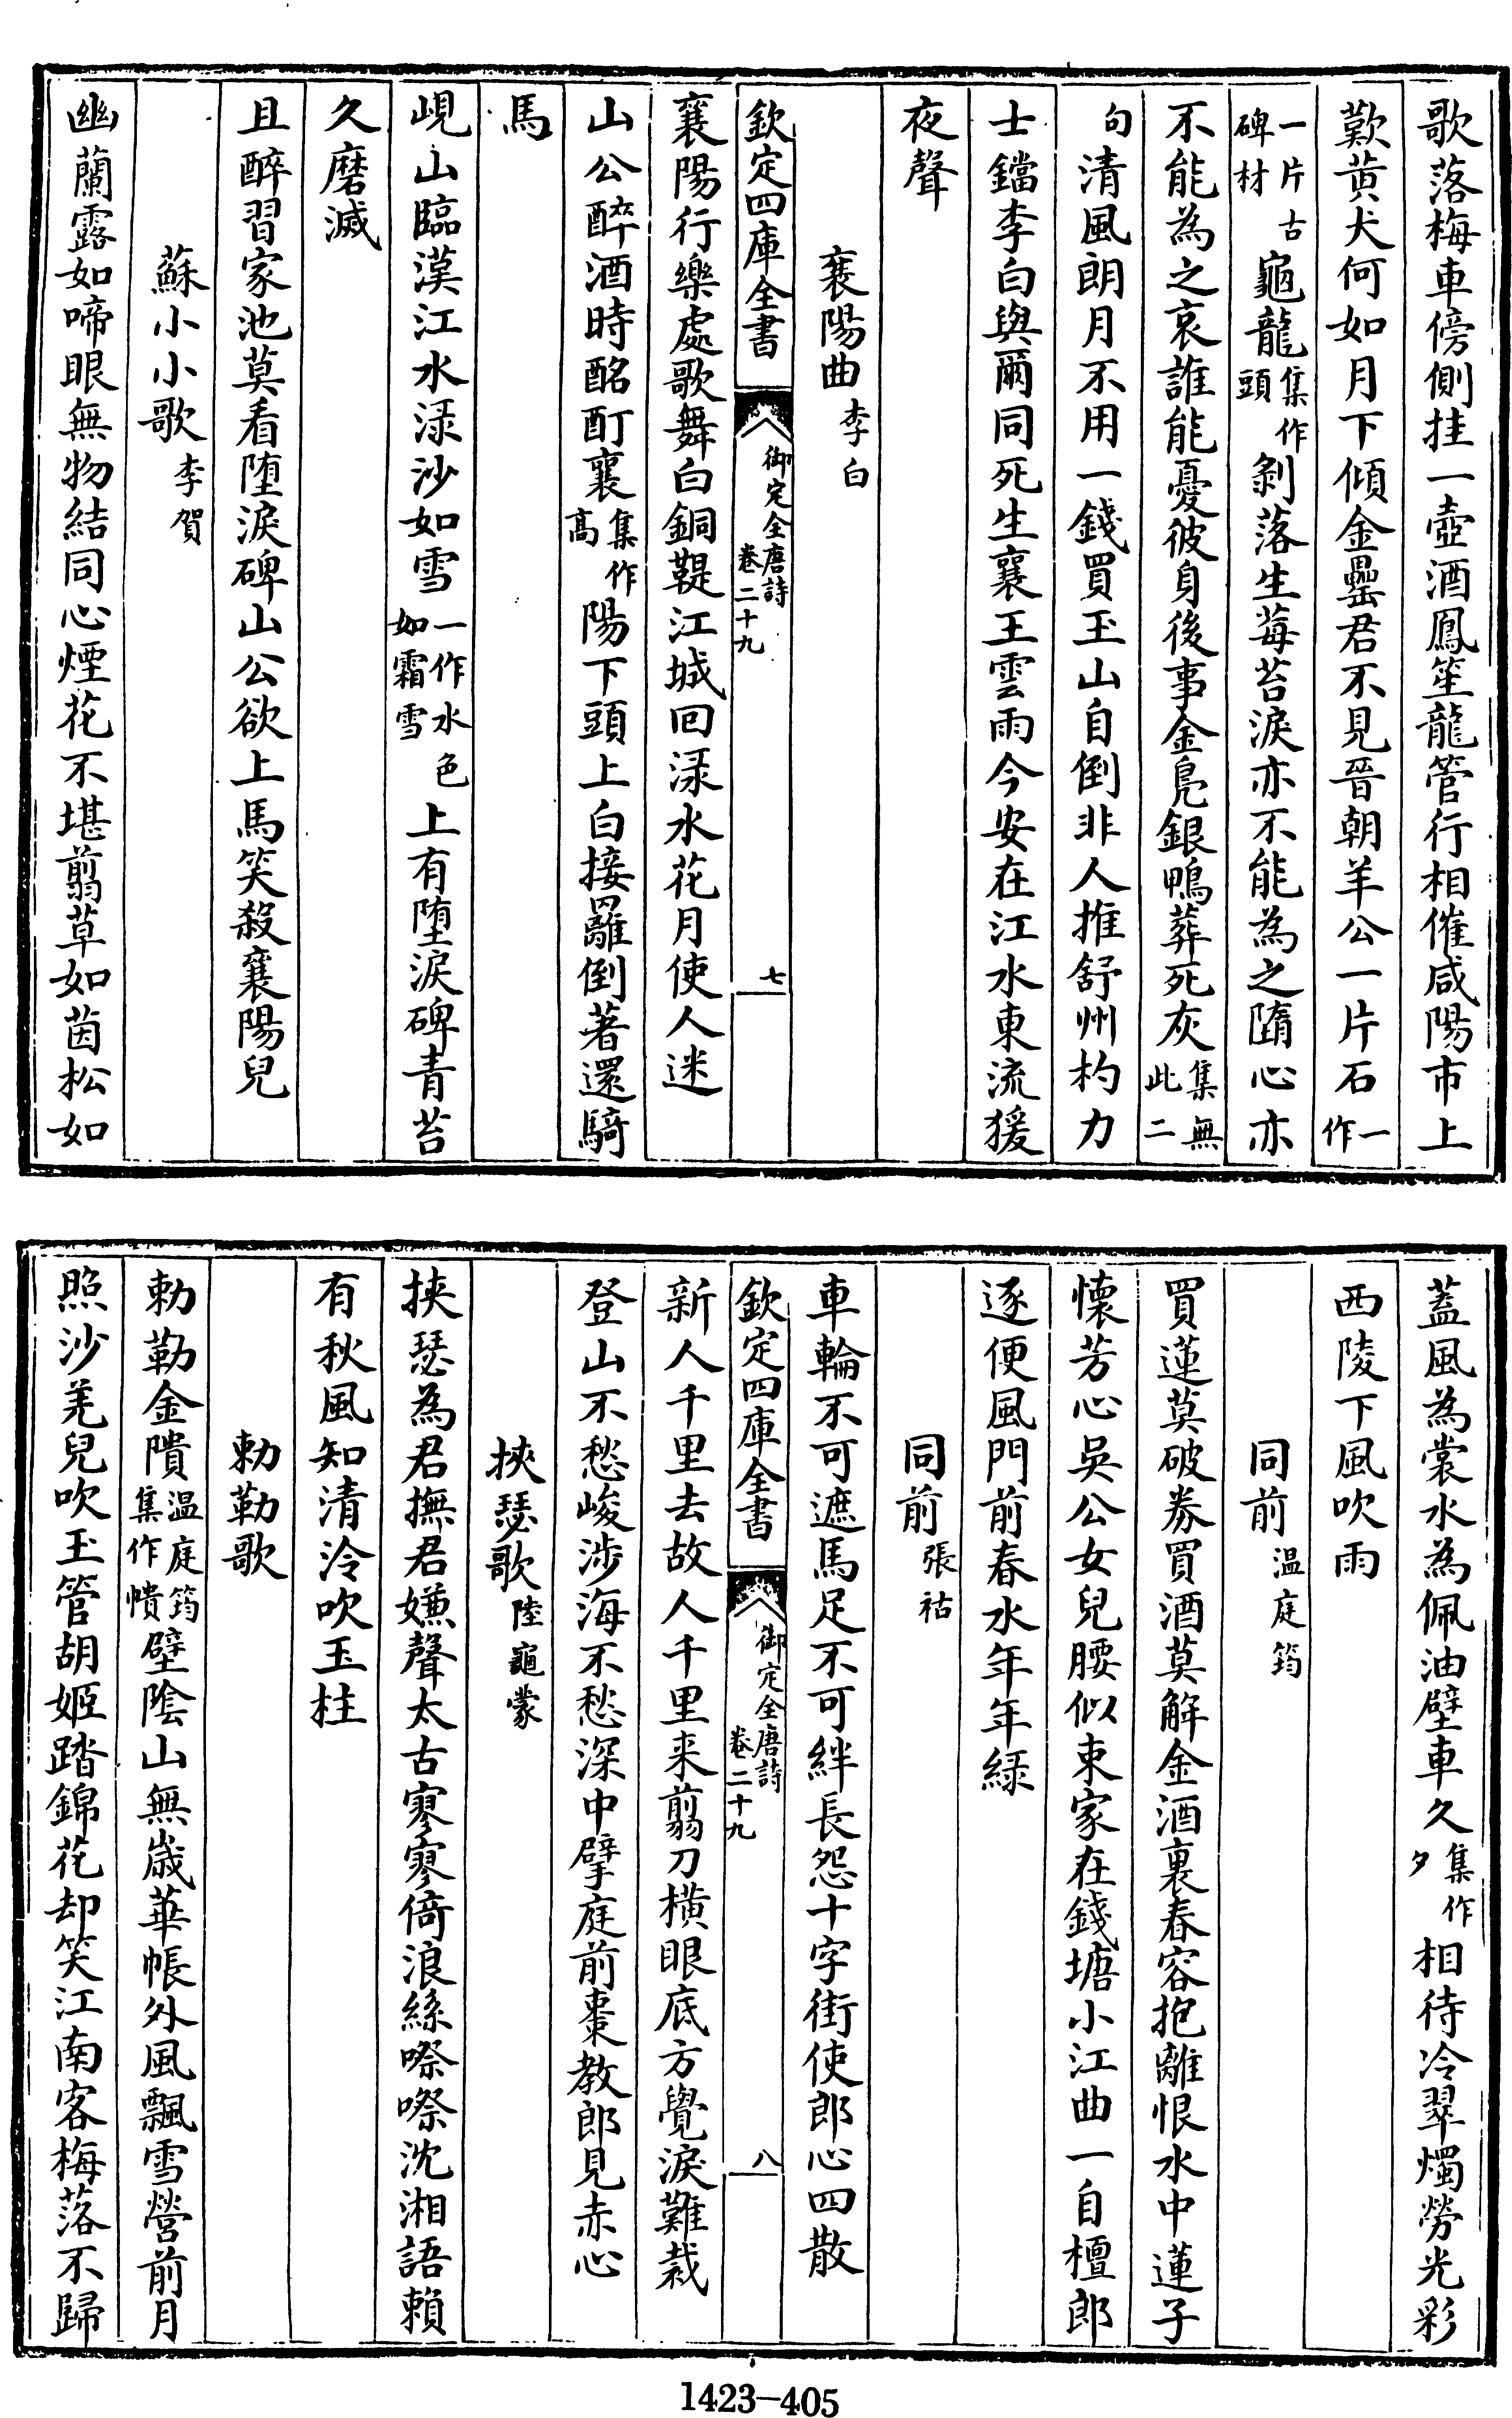 歌落梅車傍側挂一壺酒鳳笙龍管行相催咸陽市上
歎黄犬何如月下傾金罍君不見晉朝羊公一片石一作
一片古碑材龜龍集作頭剝落生莓苔淚亦不能為之墮心亦
不能為之哀誰能憂彼身後事金鳧銀鴨葬死灰集無此二
句清風朗月不用一錢買玉山自倒非人推舒州杓力
士鐺李白與爾同死生襄王雲雨今安在江水東流猨
夜聲
襄陽曲李白
欽定四庫全書
御定全唐詩
卷二十九
七
襄陽行樂處歌舞白銅鞮江城回渌水花月使人迷
山公醉酒時酩酊襄集作高陽下頭上白接䍦倒著還騎
馬
峴山臨漢江水渌沙如雪一作水色如霜雪上有堕淚碑青苔
久磨滅
且醉習家池莫看堕淚碑山公欲上馬笑殺襄陽兒
蘇小小歌李賀
幽蘭露如啼眼無物結同心煙花不堪翦草如茵松如
蓋風為裳水為佩油壁車久集作夕相待冷翠燭勞光彩
西陵下風吹雨
同前温庭筠
買蓮莫破券買酒莫解金酒裏春容抱離恨水中蓮子
懷芳心吳公女兒腰似束家在錢塘小江曲一自檀郎
逐便風門前春水年年緑
同前張祜
車輪不可遮馬足不可絆長怨十字街使郎心四散
欽定四庫全書
御定全唐詩
卷二十九
八
新人千里去故人千里来翦刀横眼底方覺淚難裁
登山不愁峻涉海不愁深中擘庭前棗教郎見赤心
挾瑟歌陸龜蒙
挾瑟為君撫君嫌聲太古寥寥倚浪絲喍喍沈湘語頼
有秋風知清泠吹玉柱
勅勒歌
勅勒金隤温庭筠集作幩壁陰山無嵗華帳外風飄雪營前月
照沙羌兒吹玉管胡姬踏錦花却笑江南客梅落不歸
1423-405